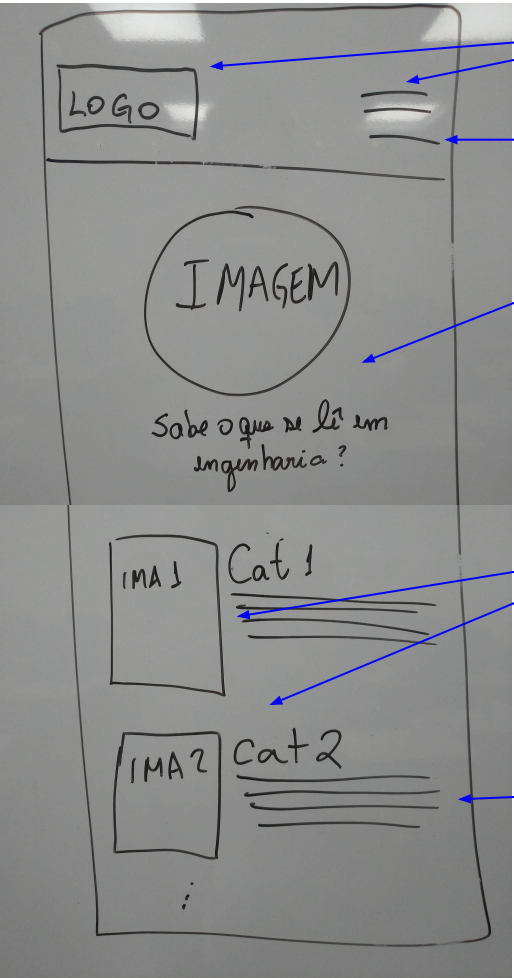 LOGO
IMAGEM
Sabe o que se lê em
engenharia?
IMA 1
Cat 1
IMA 2
Cat 2